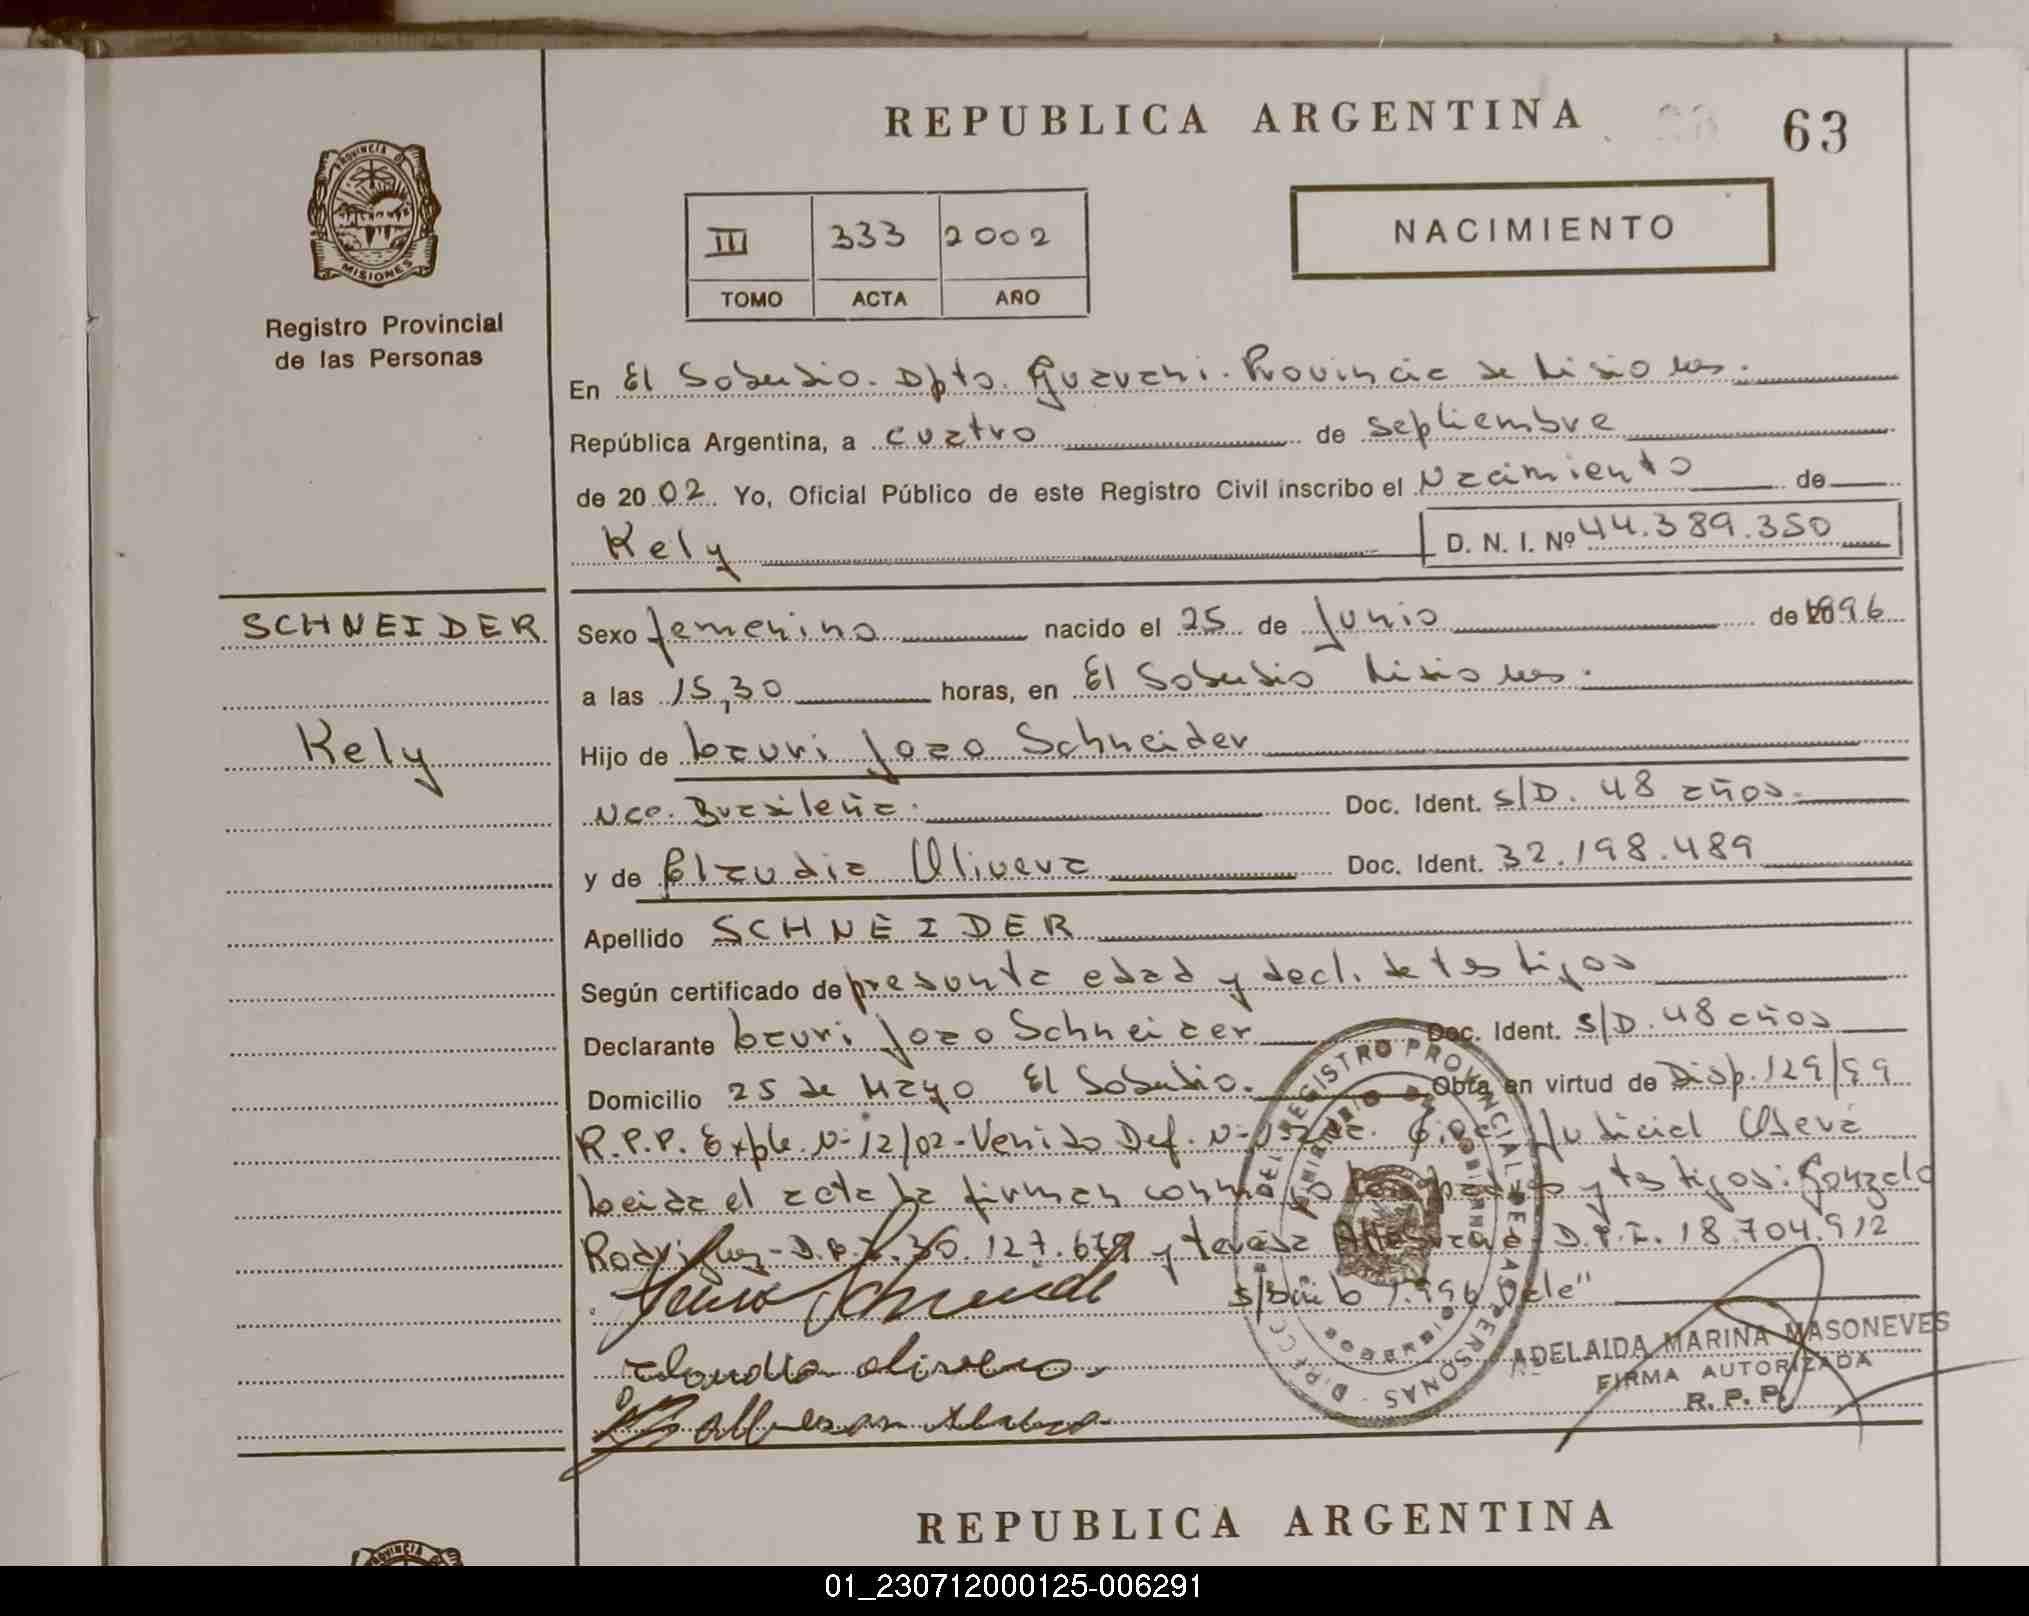 REPUBLICA ARGENTINA
63
PROVINCIA DE
MISIONES
Registro Provincial
de las Personas
III 333 2002
TOMO ACTA AÑO
NACIMIENTO
En El Soberbio. Dpto. Guarani. Provincia de Misiones.
República Argentina, a cuatro de septiembre
de 2002 Yo, Oficial Público de este Registro Civil inscribo el Nacimiento de
Kely D. N. I. Nº 44.389.350
SCHNEIDER
Kely
Sexo femenino nacido el 25 de Junio de 1996
a las 15,30 horas, en El Soberbio Misiones.
Hijo de Lauri Joao Schneider
Nac. Brasileña. Doc. Ident. S/D. 48 años.
y de Claudia Olivera Doc. Ident. 32.198.489
Apellido SCHNEIDER
Según certificado de presunta edad y decl. de testigos
Declarante Lauri Joao Schneider Doc. Ident. S/D. 48 años
Domicilio 25 de Mayo El Soberbio. Obra en virtud de Disp. 129/99
R.P.P. Expte. Nº 12/02 - Venido Def. Judicial Oberá
Leida el acta la firman conmigo los padres y testigos: Gonzalo
Rodriguez - D.N.I. 30.127.679 y Teresa D.N.I. 18.704.912
1.996 Vale"
DEL REGISTRO PROVINCIAL DE LAS PERSONAS
ADELAIDA MARINA MASONEVES
FIRMA AUTORIZADA
R. P. P.
Claudia Olivera
REPUBLICA ARGENTINA
01_230712000125-006291